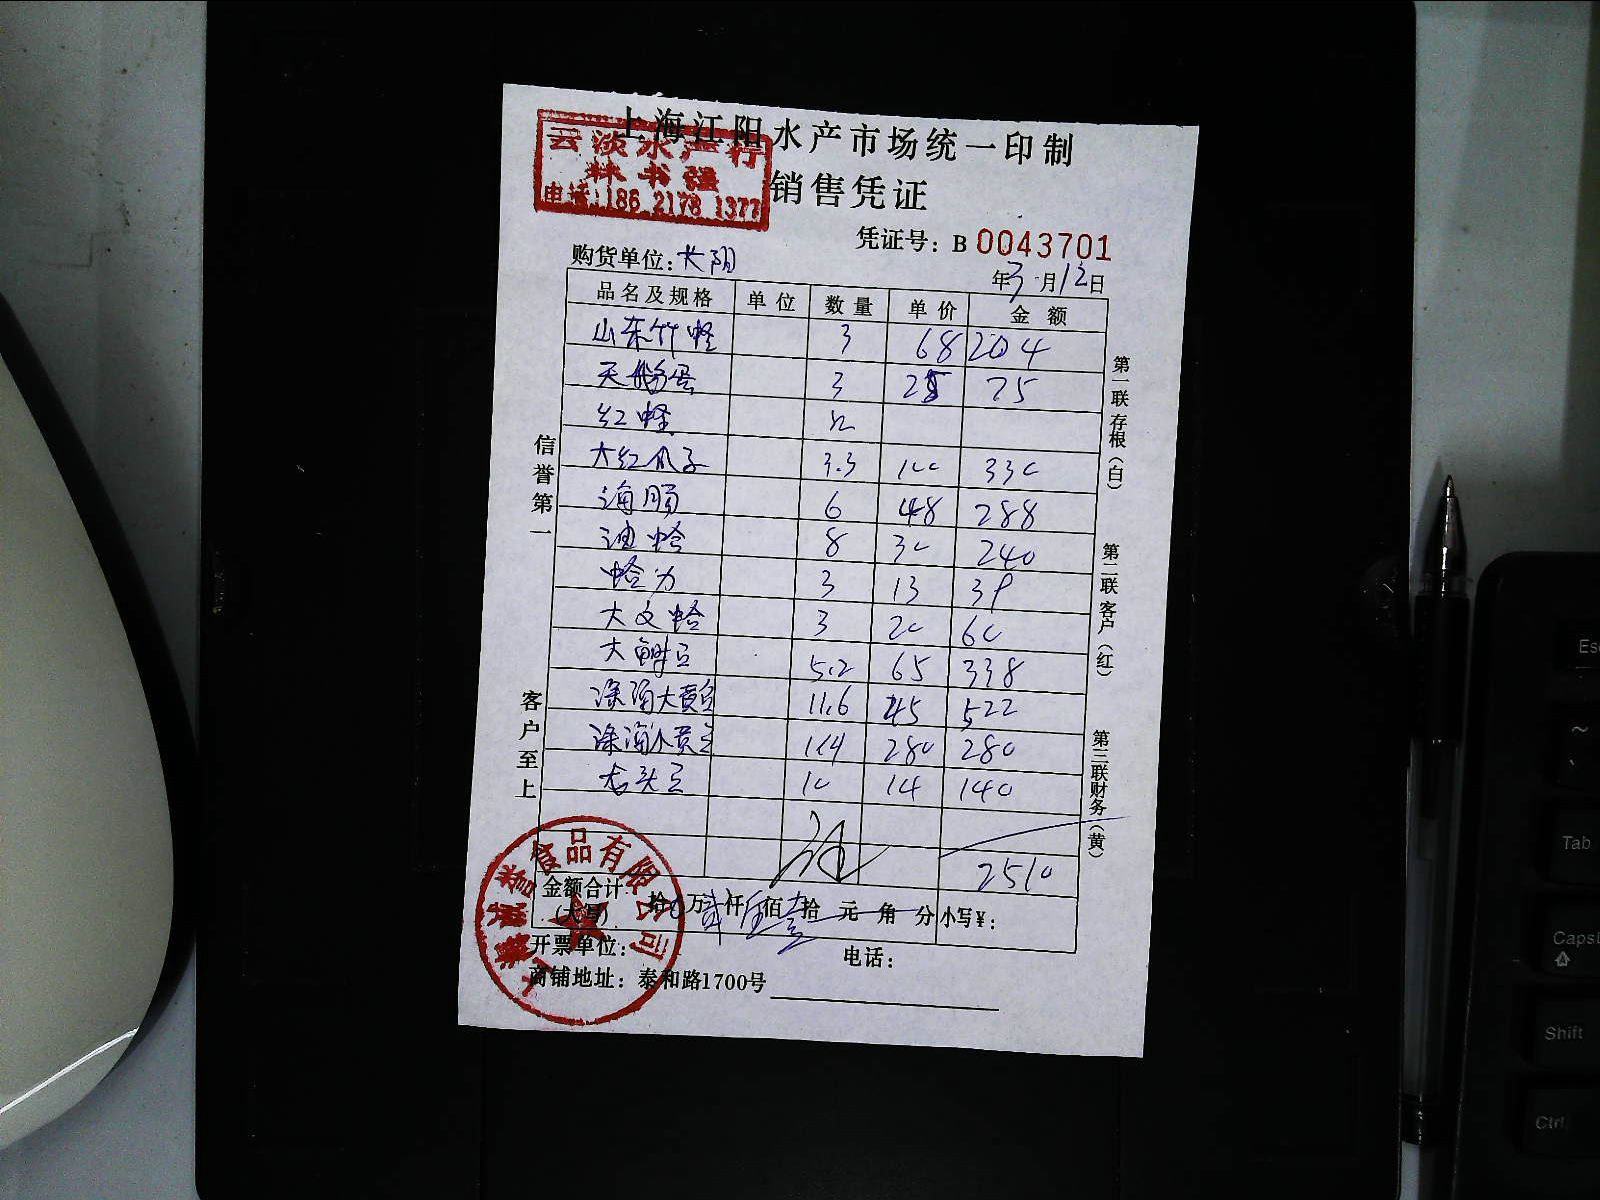 上海江阳水产市场统一印制
云淡水产行
林书强
电话:186 2178 1377
销售凭证
凭证号: B 0043701
购货单位: 长阳
年 3 月 12 日
品名及规格 单位 数量 单价 金额
山东竹蛏 3 68 204
天鹅蛋 3 25 75
红蛏
大红瓜子 3.3 100 330
海肠 6 48 288
油蛤 8 30 240
蛤为 3 13 39
大文蛤 3 20 60
大鲜豆 5.2 65 338
深海大黄豆 11.6 45 522
深海小黄豆 280 280
石头豆 10 14 140
2510
金额合计(大写) 拾 0 万 贰 仟 伍 佰 壹 拾 元 角 分 小写¥:
开票单位: 电话:
商铺地址: 泰和路1700号
信誉第一
客户至上
第一联 存根(白)
第二联 客户(红)
第三联 财务(黄)
食品有限公司
Esc
~
Tab
Caps
Shift
Ctrl